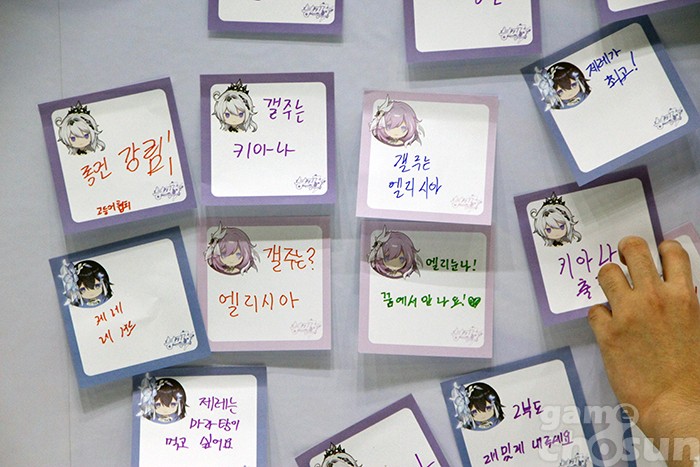 제레가
최고!
종언 강림!
갤주는
키아나
갤주는
엘리시아
키아나
출
제레
갤주는?
엘리시아
엘리눈나!
꿈에서 만나요!♥
제레는
마라탕이
먹고 싶어요
2부도
재밌게 내주세요
game
chosun